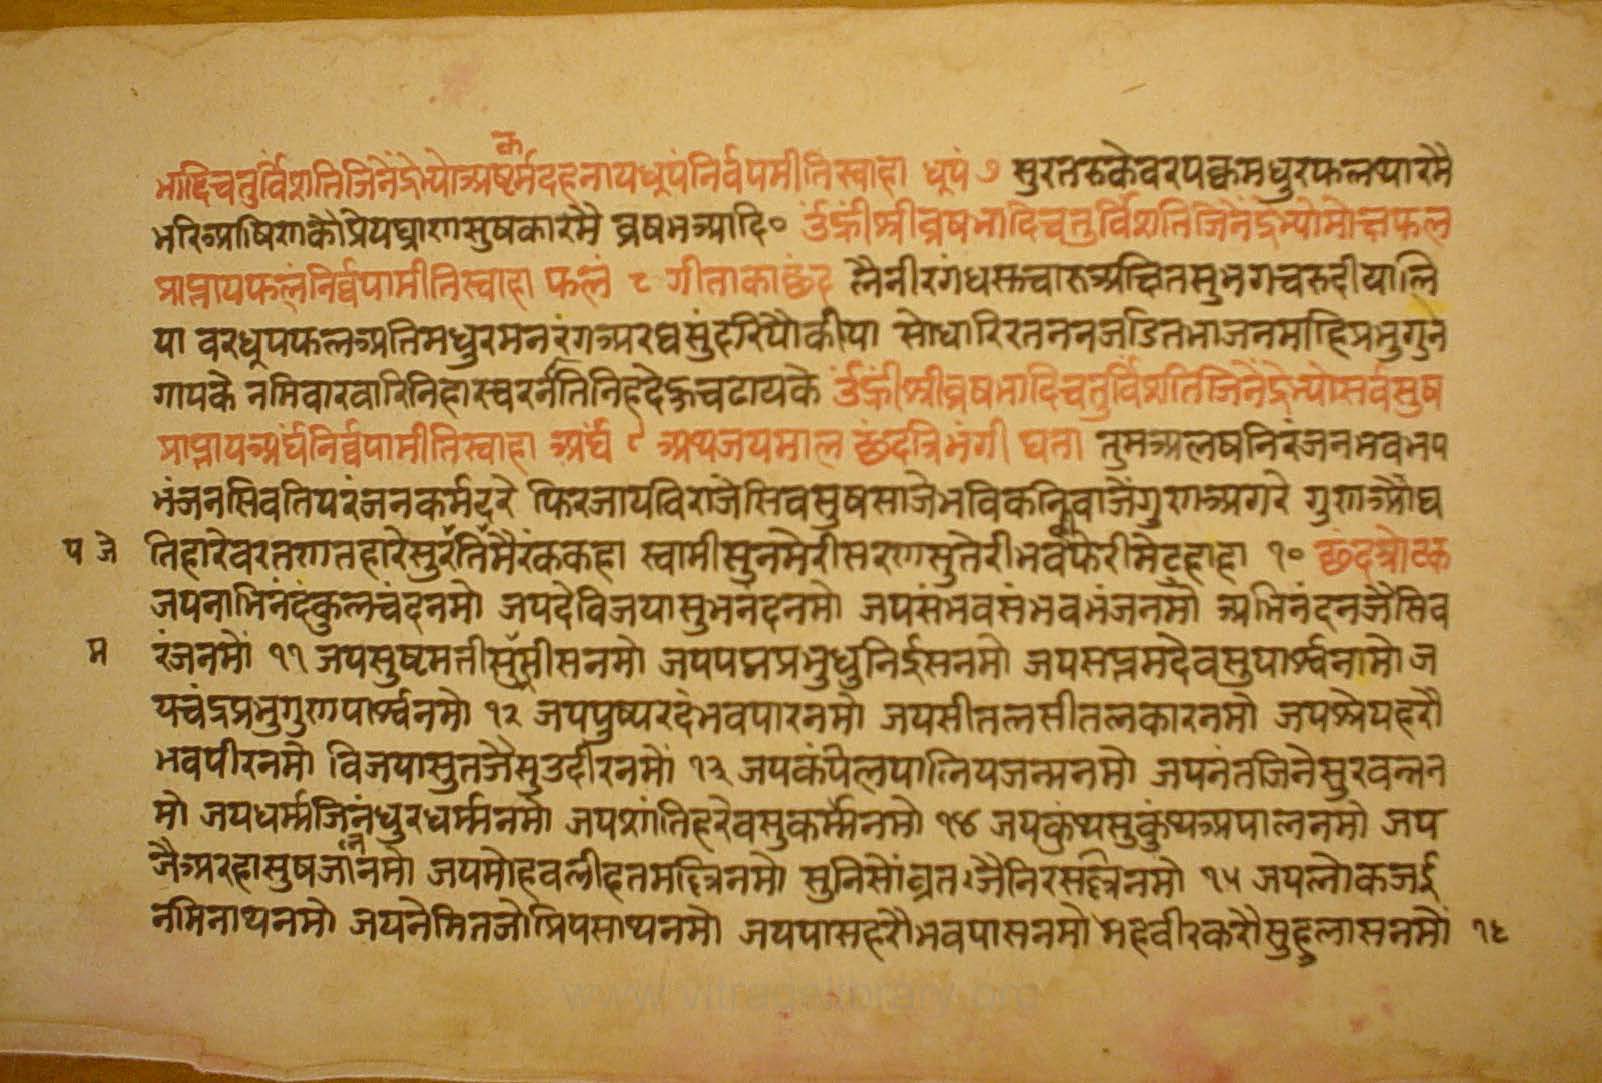 भादिचतुर्विंशतिजिनेंद्रेभ्योअष्टकर्मदहनायधूपंनिर्वपमीतिस्वाहा धूपं ७ सुरतरुकेवरपक्वमधुरफलथारमै
भरिआषिराकौप्रेयघ्राणसुषकारमै व्रषभआदि० र्उंह्रींश्रीव्रषभादिचतुर्विंशतिजिनेंद्रेभ्योमोक्षफल
प्राप्तायफलंनिर्व्वपामीतिस्वाहा फलं ८ गीताकाछंद लैनीरगंधसत्वारुअक्षितसुभगचरुदीयालि
या वरधूपफलअतिमधुरमनरंगअरघसुंदरियौकीया सोधारिरतननजडितभाजनमाहिप्रभुगुन
गायकै नमिवारवारिनिहास्वरर्नतिनिहदेऊचढायके र्उंह्रींश्रीव्रषभादिचतुर्विंशतिजिनेंद्रेभ्योसर्वसुष
प्राप्तायअर्घंनिर्व्वपामीतिस्वाहा अर्घं ९ अथजयमाल छंदत्रिभंगी घता तुमअलषनिरंजनभवभय
भंजनसिवतियरंजनकर्मदरे फिरजायविराजेसिवसुषसाजेभविकनिवाजैंगुणअगरे गुणऔघ
प जे तिहारेवरतणतहारेसुरर्तिमैरंककहा स्वामीसुनमेरीसरणसुतेरीभवफेरीमेटहाहा १० छंदत्रोटक
जयनाभिनंदकुलचंदनमो जयदेविजयासुभनंदनमो जयसंभवसंभवभंजनमो अभिनंदनजैसिव
म रंजनमों ११ जयसुष्टमतीसुसीसनमो जयपद्मप्रभुधुनिईसनमो जयसप्तमदेवसुपार्श्वनामो ज
यचंद्रप्रभुगुणपार्श्वनमो १२ जयपुष्परदंभवपारनमो जयसीतलसीतलकारनमो जयश्रेयहरौ
भवपीरनमो विजयासुतजैसुउदीरनमों १३ जयकंपिलपालियजन्मनमो जयनंतजिनेसुरवन्नन
मो जयधर्म्मजिनंधुरधर्म्मनमो जयशांतिहरेवसुकर्म्मनमो १४ जयकुंथसुकुंथअपालनमो जय
जैअरहासुषजाननमो जयमोहवलीहतमल्लिनमो सुनिसोंव्रतजैनिरसल्लिनमो १५ जयलोकजई
नमिनाथनमो जयनेमितजोप्रियसाथनमो जयपासहरौभवपासनमो महवीरकरौसुहुलासनमों १६
www.vitragalibrary.org